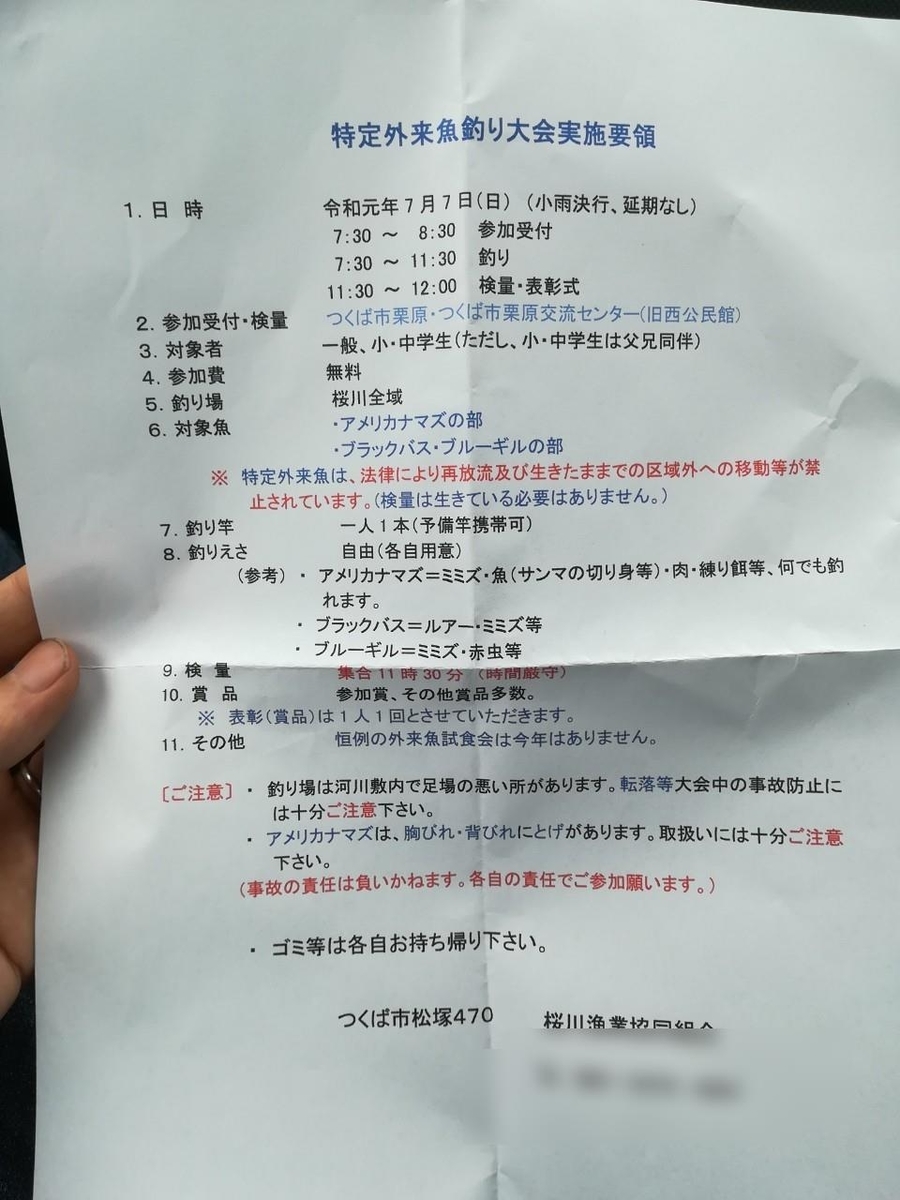 特定外来魚釣り大会実施要領
1. 日 時 令和元年7月7日(日) (小雨決行、延期なし)
7:30 ~ 8:30 参加受付
7:30 ~ 11:30 釣り
11:30 ~ 12:00 検量・表彰式
2. 参加受付・検量 つくば市栗原・つくば市栗原交流センター(旧西公民館)
3. 対象者 一般、小・中学生(ただし、小・中学生は父兄同伴)
4. 参加費 無料
5. 釣り場 桜川全域
6. 対象魚 ・アメリカナマズの部
・ブラックバス・ブルーギルの部
※ 特定外来魚は、法律により再放流及び生きたままでの区域外への移動等が禁
止されています。(検量は生きている必要はありません。)
7. 釣り竿 一人1本(予備竿携帯可)
8. 釣りえさ 自由(各自用意)
(参考) ・ アメリカナマズ=ミミズ・魚(サンマの切り身等)・肉・練り餌等、何でも釣
れます。
・ ブラックバス=ルアー・ミミズ等
・ ブルーギル=ミミズ・赤虫等
9. 検 量 集合11時30分 (時間厳守)
10. 賞 品 参加賞、その他賞品多数。
※ 表彰(賞品)は1人1回とさせていただきます。
11. その他 恒例の外来魚試食会は今年はありません。
〔ご注意〕 ・ 釣り場は河川敷内で足場の悪い所があります。転落等大会中の事故防止に
は十分ご注意下さい。
・ アメリカナマズは、胸びれ・背びれにとげがあります。取扱いには十分ご注意
下さい。
(事故の責任は負いかねます。各自の責任でご参加願います。)
・ ゴミ等は各自お持ち帰り下さい。
つくば市松塚470 桜川漁業協同組合